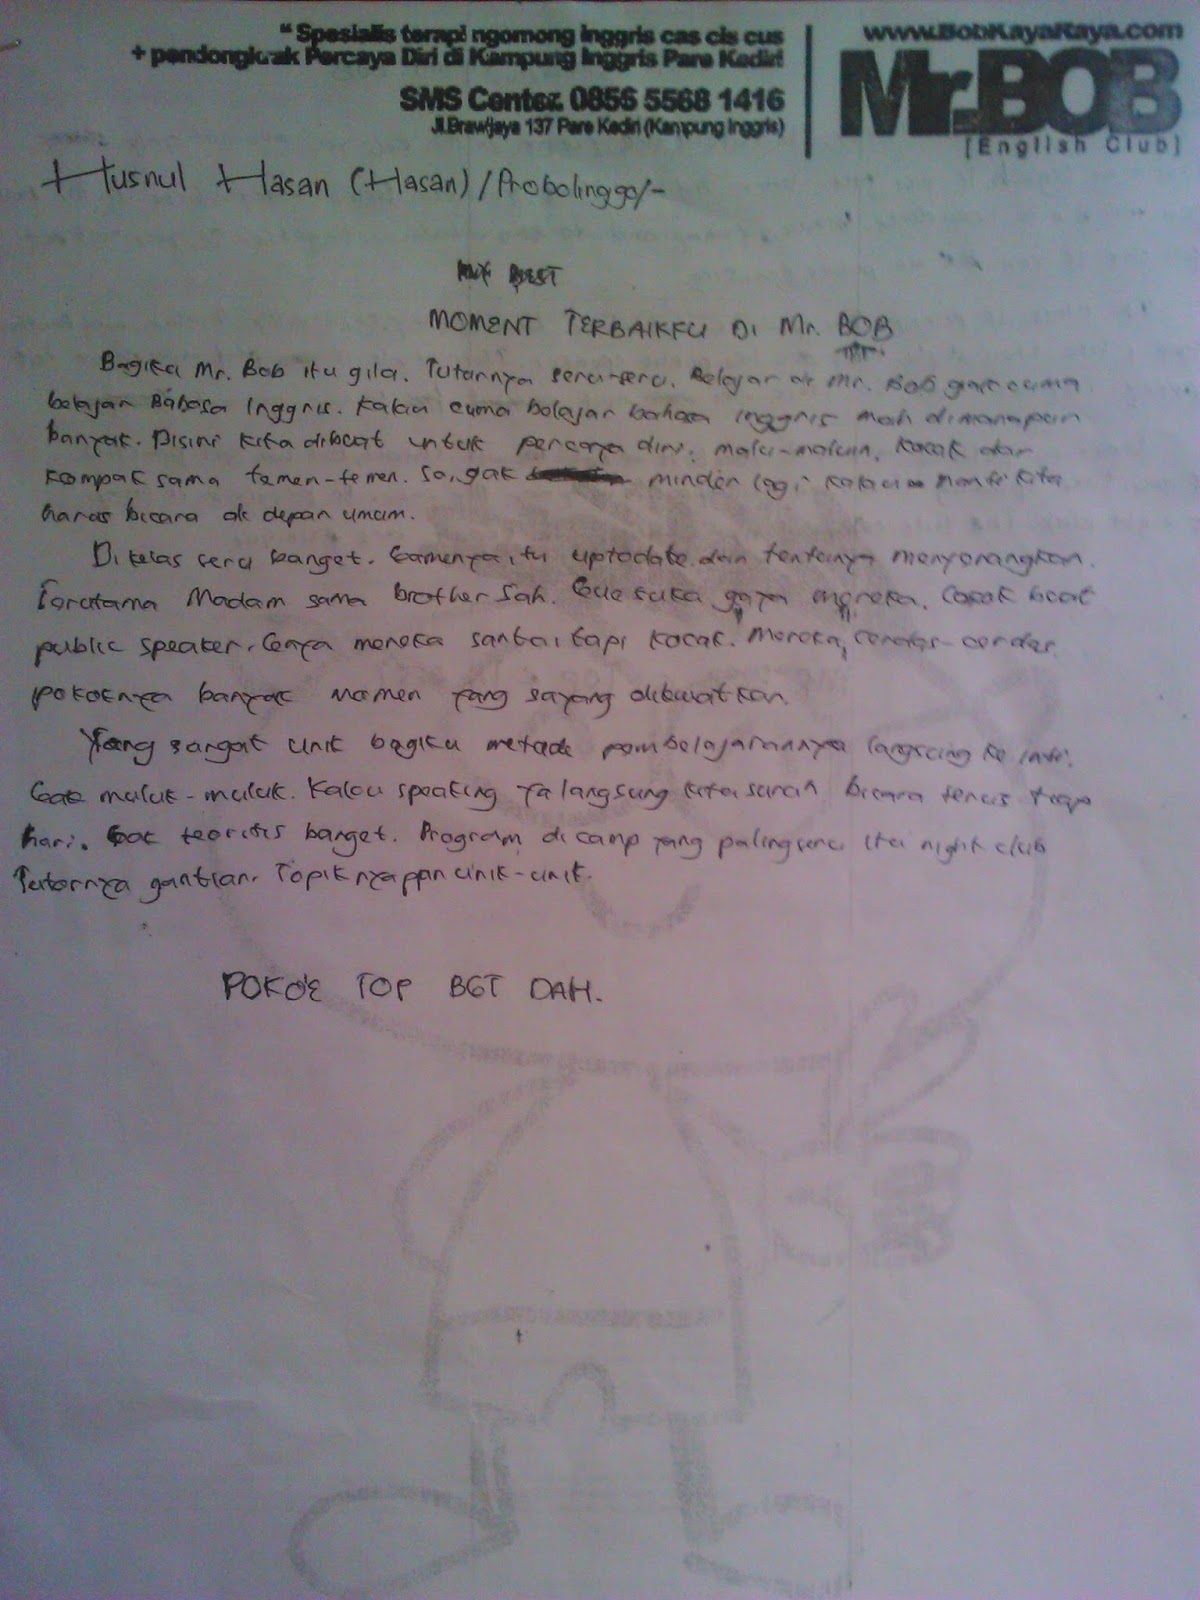 " Spesialis terapi ngomong inggris cas cis cus
+ pendongkrak Percaya Diri di Kampung Inggris Pare Kediri
SMS Center. 0856 5568 1416
Jl.Brawijaya 137 Pare Kediri (Kampung Inggris)
www.BobKayaRaya.com
Mr.BOB
[English Club]
Husnul Hasan (Hasan) / Probolinggo/-
BEST
MOMENT TERBAIKKU DI Mr. BOB
Bagiku Mr. Bob itu gila. Tutornya seru-seru. Belajar di Mr. Bob gak cuma
belajar Bahasa Inggris. Kalau cuma belajar bahasa Inggris mah dimanapun
banyak. Disini kita dibuat untuk percaya diri, malu-maluin, kocak dan
kompak sama temen-temen. So, gak minder lagi kalau nanti kita
harus bicara di depan umum.
Di kelas seru banget. Gamenya itu uptodate dan tentunya menyenangkan.
Terutama Madam sama brother Sah. Gue suka gaya mereka. Cocok buat
public speaker. Gaya mereka santai tapi kocak. Mereka cerdas-cerdas.
pokoknya banyak momen yang sayang dilewatkan.
Yang sangat unik bagiku metode pembelajarannya langsung ke inti.
Gak muluk-muluk. Kalau speaking ya langsung kita suruh bicara terus tiap
hari. Gak teoritis banget. Program di camp yang paling seru itu night club
Tutornya gantian. Topiknya pun unik-unik.
POKO'E TOP BGT DAH.